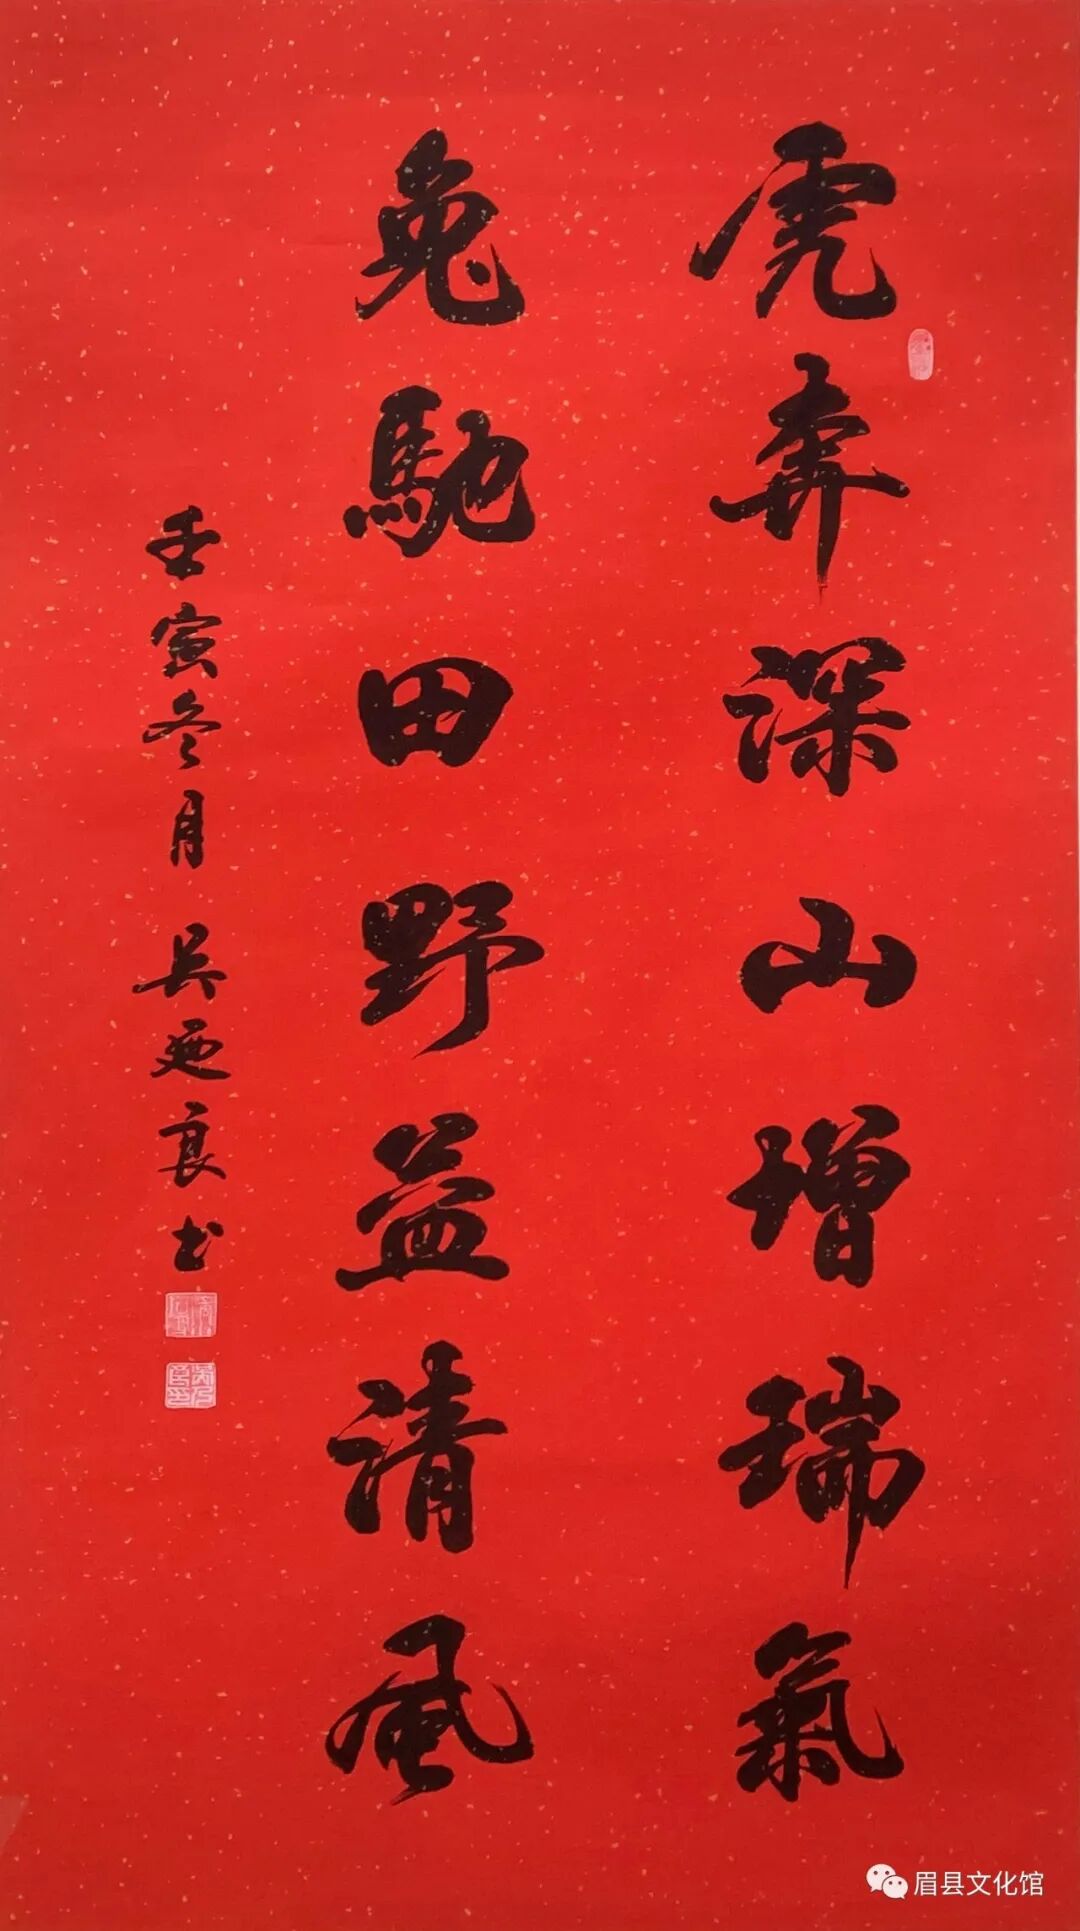 虎奔深山增瑞氣
兔馳田野益清風
壬寅冬月吴廼良书
眉县文化馆